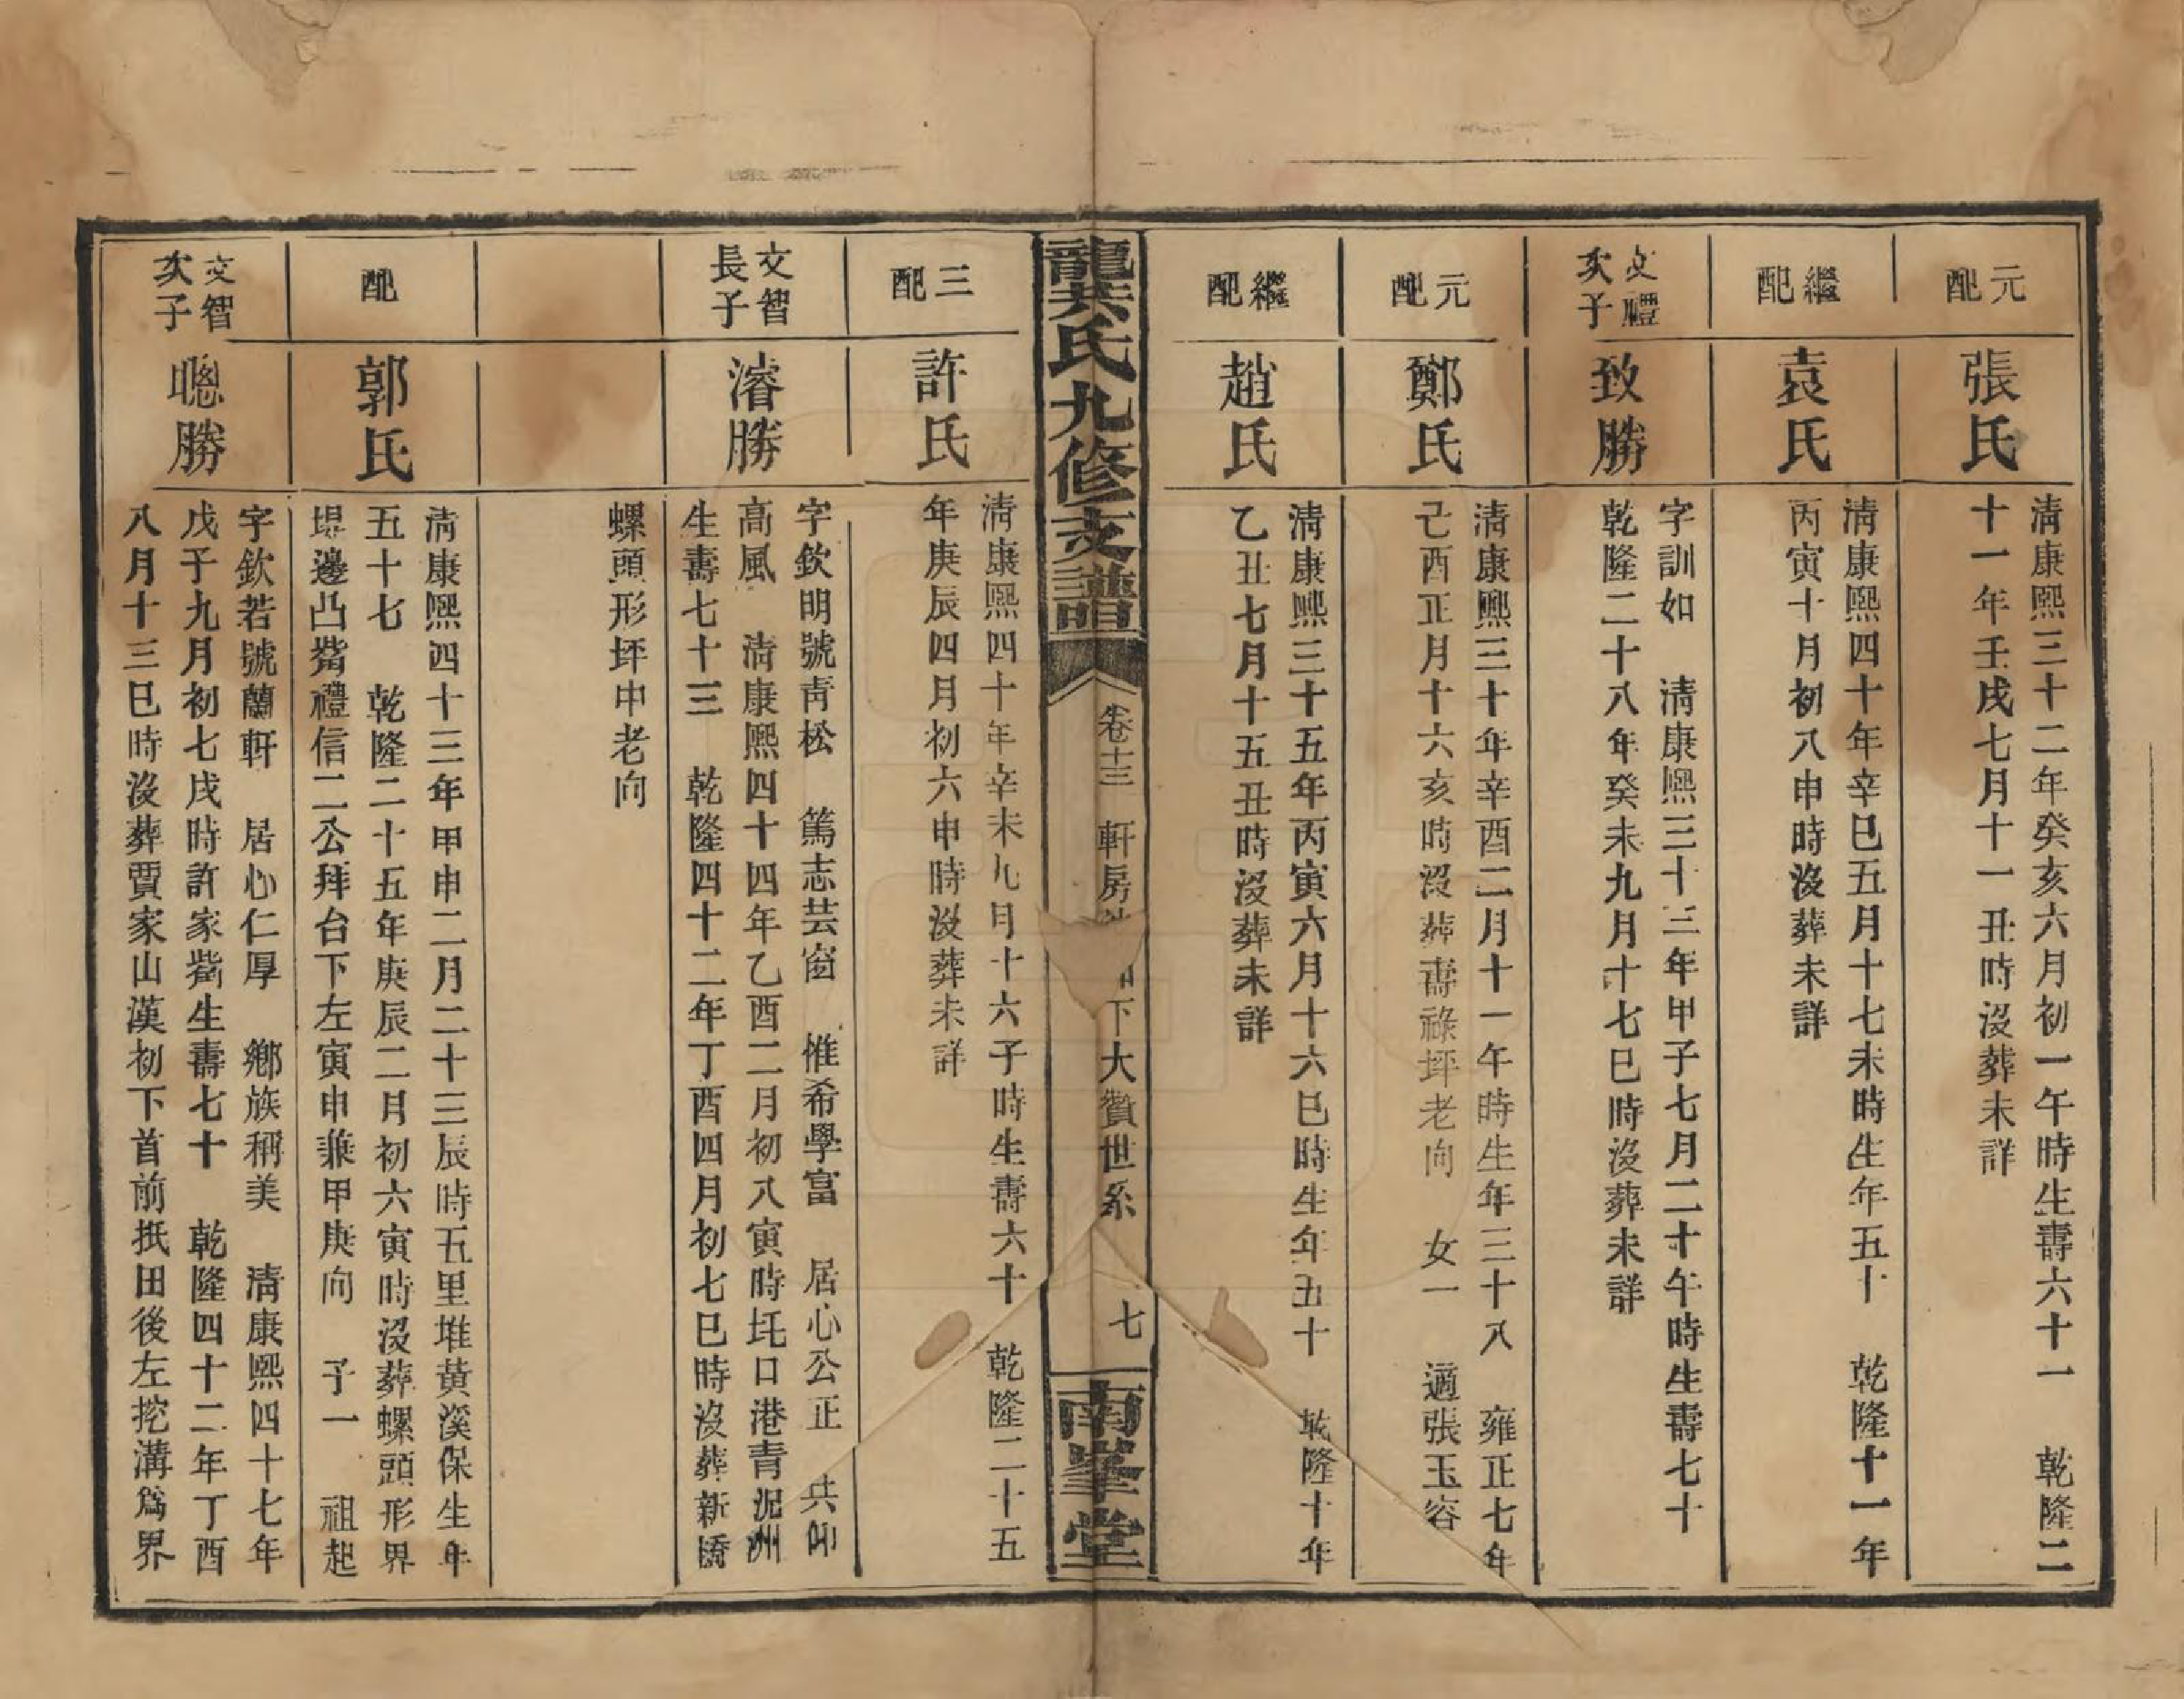 元配
張氏
清康熙三十二年癸亥六月初一午時生壽六十一　乾隆二
十一年壬戌七月十一丑時沒葬未詳
繼配
袁氏
清康熙四十年辛巳五月十七未時生年五十　乾隆十一年
丙寅十月初八申時沒葬未詳
文禮
次子
致勝
字訓如　清康熙三十三年甲子七月二十午時生壽七十
乾隆二十八年癸未九月十七巳時沒葬未詳
元配
鄭氏
清康熙三十年辛酉二月十一午時生年三十八　雍正七年
己酉正月十六亥時沒葬壽祿坪老向　女一　適張玉容
繼配
趙氏
清康熙三十五年丙寅六月十六巳時生年五十　乾隆十年
乙丑七月十五丑時沒葬未詳
龔氏九修支譜
卷十三　軒房
下大贊世系　七
南峯堂
三配
許氏
清康熙四十年辛未九月十六子時生壽六十　乾隆二十五
年庚辰四月初六申時沒葬未詳
文智
長子
濬勝
字欽明號靑松　篤志芸窗　惟希學富　居心公正　共仰
高風　清康熙四十四年乙酉二月初八寅時圫口港青泥洲
生壽七十三　乾隆四十二年丁酉四月初七巳時沒葬新橋
螺頭形坪中老向
配
郭氏
清康熙四十三年甲申二月二十三辰時五里堆黃溪保生年
五十七　乾隆二十五年庚辰二月初六寅時沒葬螺頭形界
堤邊凸嘴禮信二公拜台下左寅申兼甲庚向　子一　祖起
文智
次子
聰勝
字欽若號蘭軒　居心仁厚　鄉族稱美　清康熙四十七年
戊子九月初七戌時許家嘴生壽七十　乾隆四十二年丁酉
八月十三巳時沒葬賈家山漢初下首前抵田後左挖溝爲界